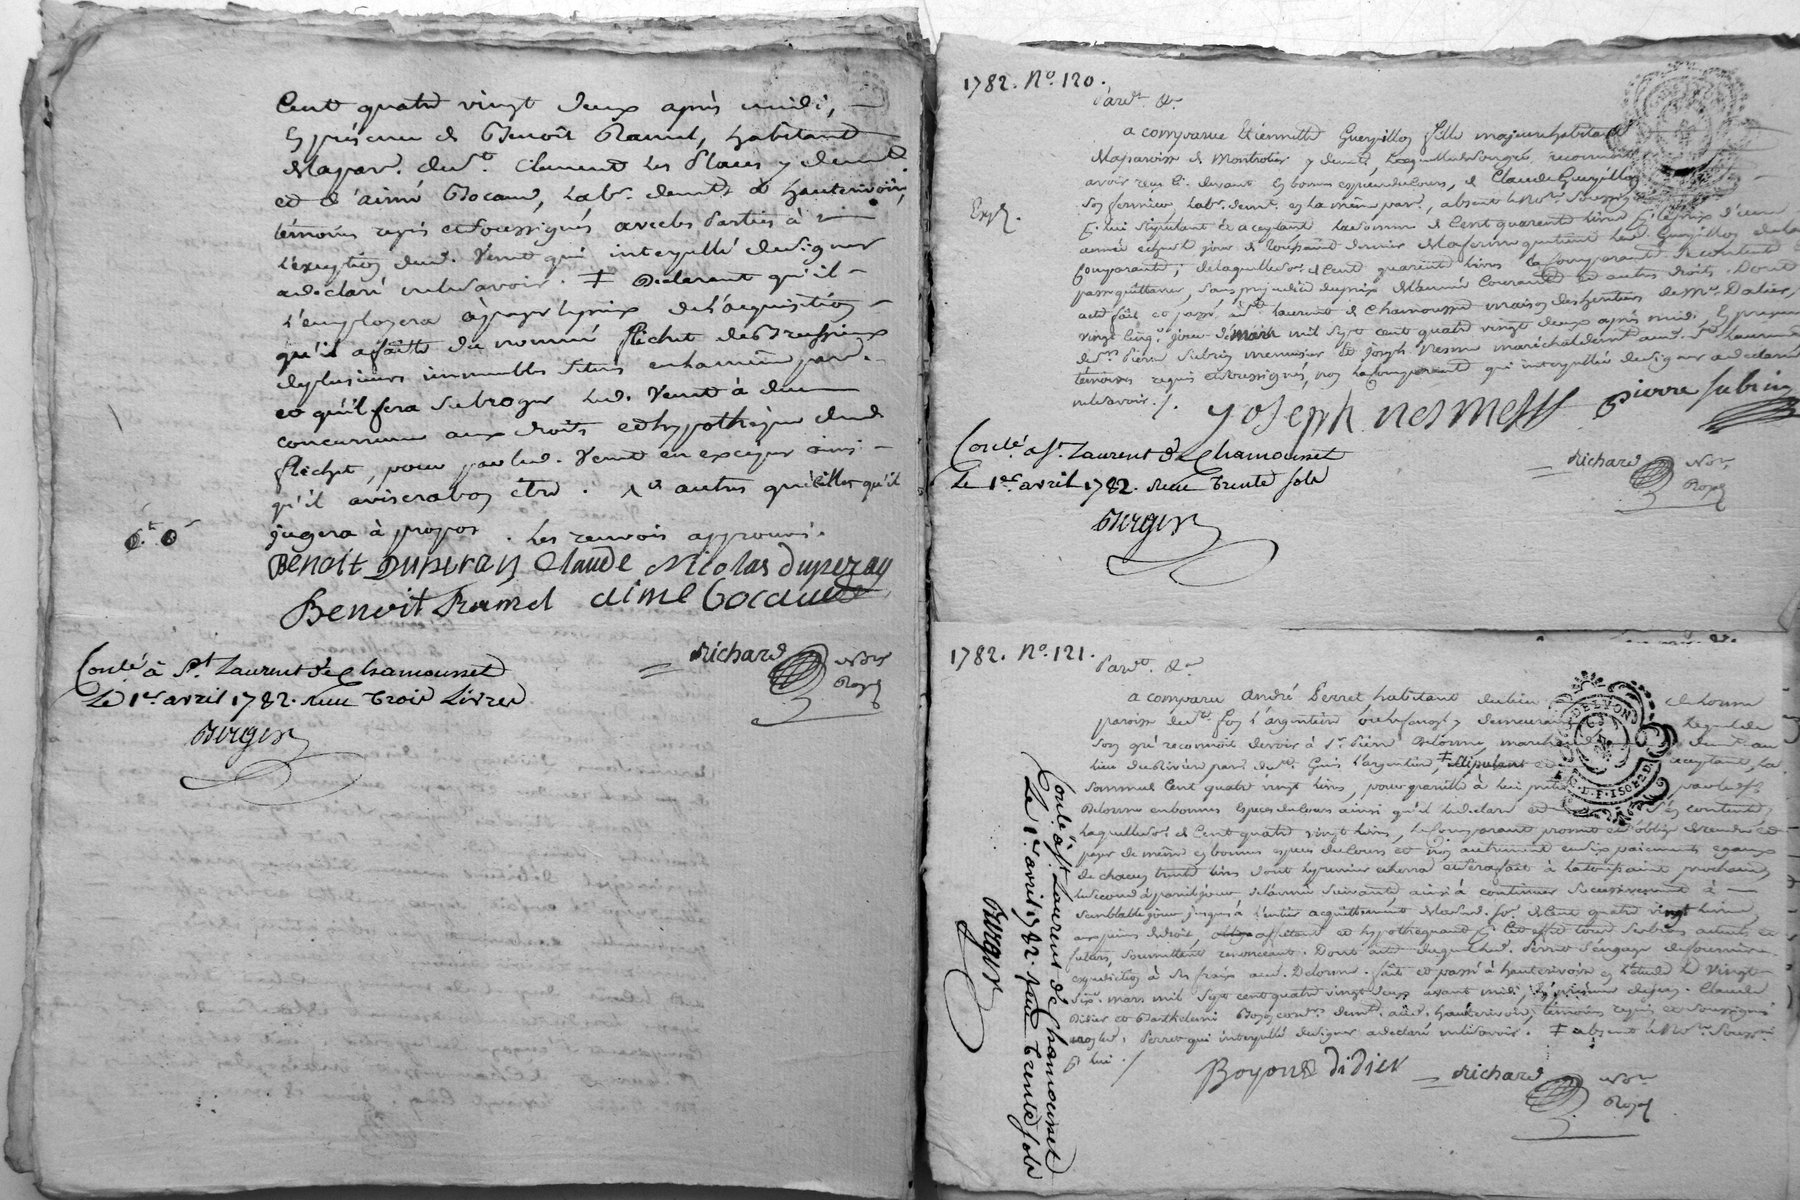 Cent quatre vingt deux après midi,
En présence de Benoît Ramel, habitant
de la par. de St. Clement les Places y demt
et d'aimé Bocaud, lab. demt à hauterivoire,
témoins requis et soussignés avec les parties à
l'exception dud. Venet qui interpellé de signer
a declaré ne le savoir. ‡ Declarant qu'il
l'employera à payer le prix de l'acquisition
qu'il a faitte du nommé flechet de Brussieux
de plusieurs immeubles situés en la même par.
et qu'il fera subroger led. Venet à due
concurrence aux droits et hypotheque dud.
flechet, pour par led. Venet en exciper ainsi
qu'il avisera bon être. et autres qu'elles qu'il
jugera à propos. Les renvois approuvés.
Benoit Duperay Claude Nicolas duperay
Benoit Ramel aime bocaud
Richard Nore
Royal
Conlé à St. Laurent de Chamousset
Le 1er avril 1782. reçu trois Livres
Berger
1782. No. 120.
Pardt &a
a comparue Etiennette Guerpillon fille majeure habitante
de la paroisse de Montrotier y demte, Laquelle de son gré reconnoit
avoir reçu ci devant en bonnes especes de cours, de Claude Guerpillon
son fermier lab. demt. en la même par., absent le Nre Soussigné
Pr lui stipulant et aceptant la somme de Cent quarente livres pr le prix d'une
année echue le jour de Toussaint dernier de la ferme que tient led. Guerpillon de lad.
Comparante; de laquelle so. de Cent quarente livres la Comparante se contente
passe quittance, sans prejudice du prix de l'année Courante et autres droits. Dont
acte fait et passé aud. St Laurent de Chamousset maison des heritiers de Mr. Dalier,
vingt cinq. jour de mars mil sept cent quatre vingt deux après midi. En presence
de Sr. Pierre Subrin menuisier et Joseph Nesme maréchal demt aud. St Laurent
témoins requis et soussignés, non la Comparante qui interpellée de signer a declaré
ne le savoir./.
Expé.
Joseph nesme pierre subrin
Richard Nore
Royal
Conlé à St. Laurent de Chamousset
Le 1er avril 1782. reçu trente sols
Berger
1782. No. 121.
Pardt. &a
a comparu André Perret, habitant du lieu
paroisse de St. Foy l'argentiere ou resonost y demeurant Lequel de
son gré reconnoit devoir à Sr. Pierre Delorme, marchand demt. au
lieu du Rivier par. de St. Genis l'argentiere, ‡ stipulant et aceptant, La
somme de Cent quatre vingt livres, pour pareille à lui prêtée par led. Sr.
Delorme en bonnes especes de cours ainsi qu'il le declare et s'en contente;
Laquelle so. de Cent quatre vingt livres, le Comparant promet et s'oblige de rendre et
payer de même en bonnes especes de cours et non autrement en six paiements egaux
de chacun trente livres dont le premier echerra et se fera fait à la toussaint prochain,
le second à pareil jour de l'année suivante, ainsi à continuer successivement à
semblable jour jusqu'à l'entier acquittement de lad. so. de Cent quatre vingt livres,
aux peines de droit, affectant et hypothequant pr. cet effet tous ses biens actuels et
futurs, soumettant renonceant. Dont acte duquel led. Perret s'engage de fournir
expedition à ses frais aud. Delorme. fait et passé à hauterivoire en l'etude le vingt
six. mars mil sept cent quatre vingt deux avant midi, En présence de Jean Claude
Didier et Barthelemi Boyon demt. aud. hauterivoire, témoins requis et soussignés
non led. Perret qui interpellé de signer a declaré ne le savoir. ‡ absent le Nre. Soussi.
Pr lui./
Boyon didier Richard Nore
Royal
Conlé à St. Laurent de Chamousset
Le 1er avril 1782. reçu trente sols
Berger